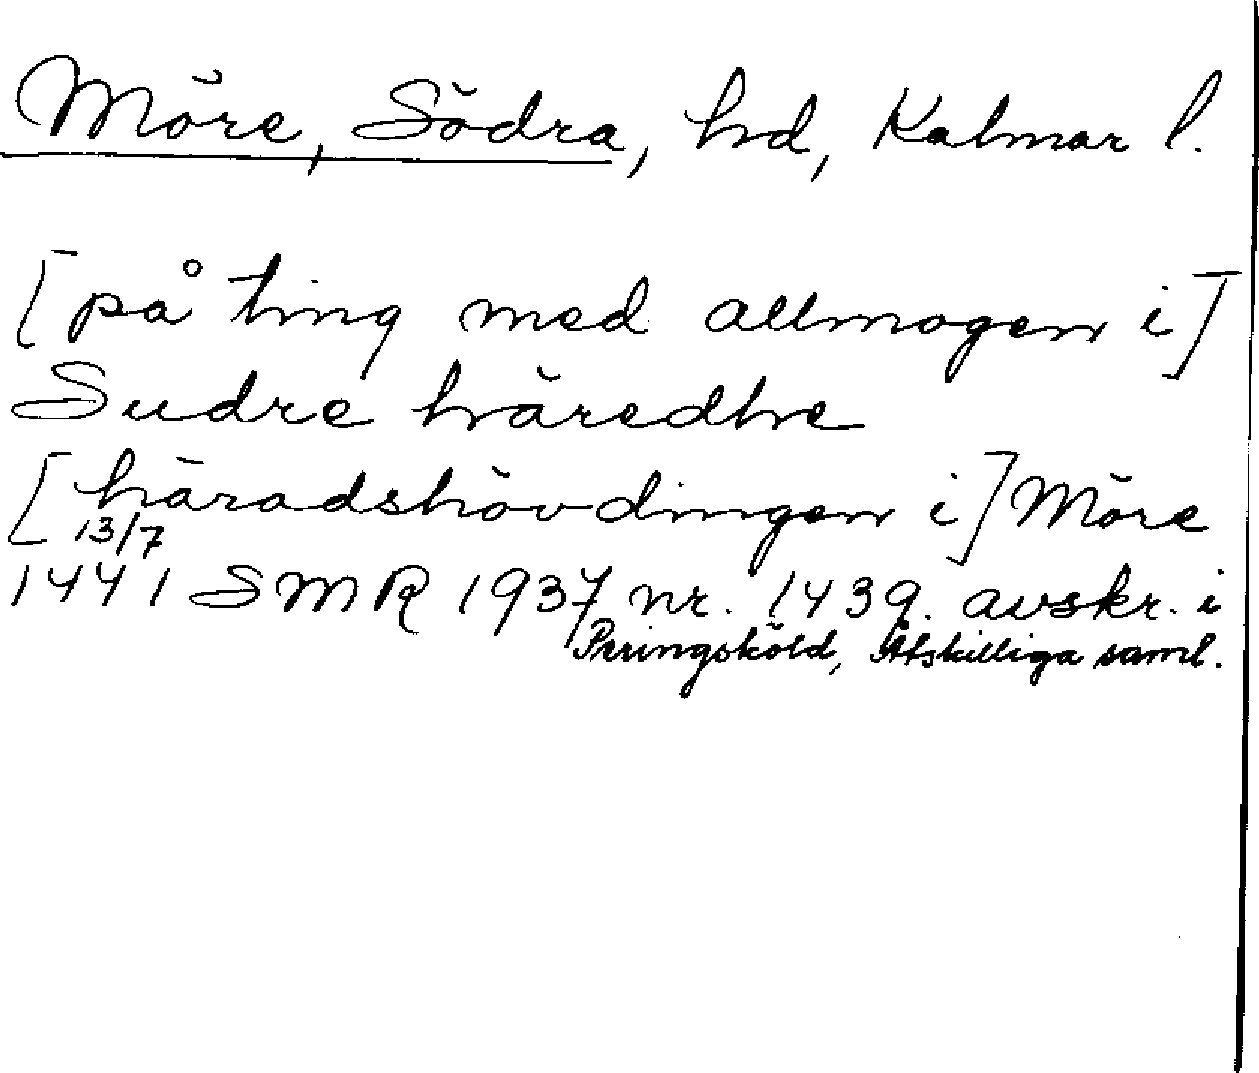 Möre, Södra, hd, Kalmar l.
[på ting med allmogen i]
Sudre häredhe
[häradshövdingen i] Möre
13/7
1441 SMR 1937 nr. 1439. avskr. i
Peringsköld, Åtskilliga saml.